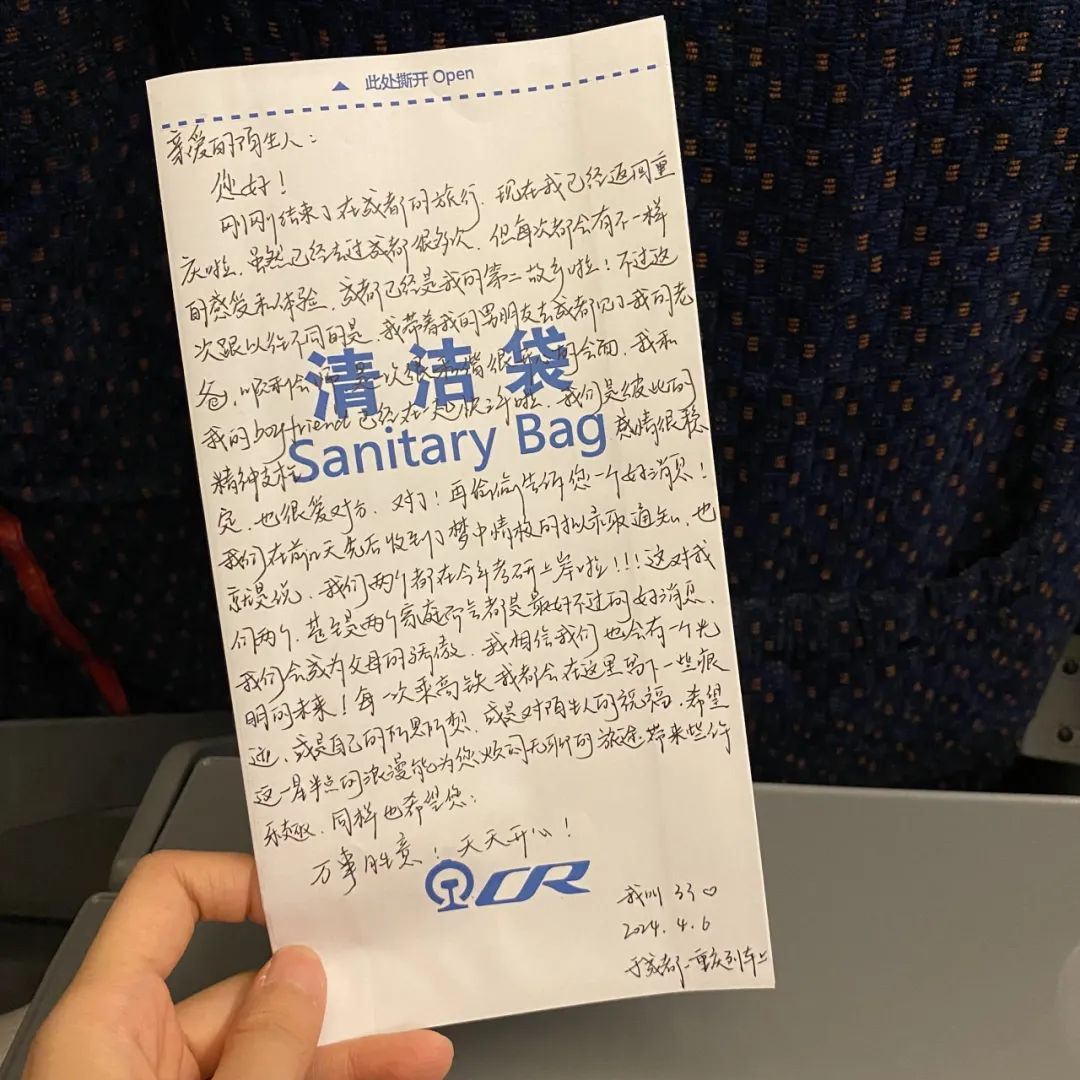 此处撕开 Open
亲爱的陌生人：
您好！
刚刚结束了在成都的旅行，现在我已经返回重
庆啦，虽然已经去过成都很多次，但每次都会有不一样
的感受和体验，成都已经是我的第二故乡啦！不过这
次跟以往不同的是，我带着我的男朋友去成都见了我的老
清洁袋
我的boyfriend已经在一起快三年啦，我们是彼此的
Sanitary Bag
精神支柱 感情很稳
定，也很爱对方，对了！再偷偷告诉您一个好消息！
我们在前几天先后收到了梦中情校的拟录取通知，也
就是说，我们两个都在今年考研上岸啦！！！这对我
们两个，甚至是两个家庭而言都是最好不过的好消息，
我们会成为父母的骄傲，我相信我们也会有一个光
明的未来！每一次乘高铁我都会在这里写下一些痕
迹，或是自己的所思所想，或是对陌生人的祝福，希望
这一星半点的浪漫能为您烦闷无聊的旅途带来些许
乐趣，同样也希望您：
万事胜意！天天开心！
CR
我叫 33♡
2024.4.6
于成都-重庆列车上